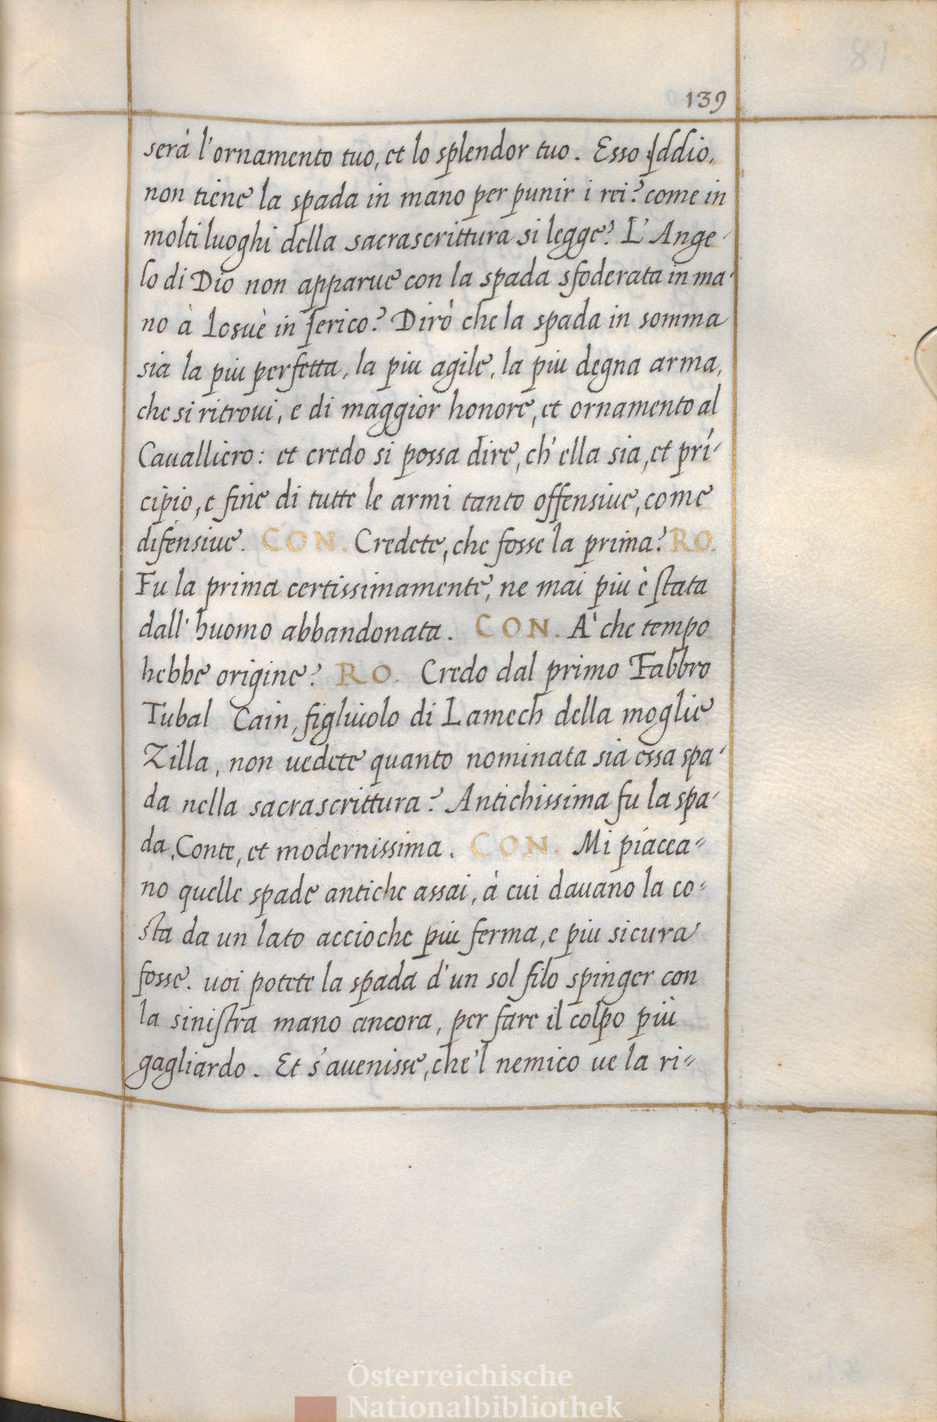 139
serà l'ornamento tuo, et lo splendor tuo. Esso Iddio,
non tiene la spada in mano per punir i rei? come in
molti luoghi della sacrascrittura si legge? L'Ange-
lo di Dio non apparue con la spada sfoderata in ma-
no à Iosuè in Ierico? Dirò che la spada in somma
sia la piu perfetta, la piu agile, la piu degna arma,
che si ritroui, e di maggior honore, et ornamento al
Caualliero: et credo si possa dire, ch'ella sia, et prī-
cipio, e fine di tutte le armi tanto offensiue, come
difensiue. CON. Credete, che fosse la prima? RO.
Fu la prima certissimamente, ne mai piu è stata
dall'huomo abbandonata. CON. A' che tempo
hebbe origine? RO. Credo dal primo Fabbro
Tubal Cain, figliuolo di Lamech della moglie
Zilla, non uedete quanto nominata sia essa spa-
da nella sacrascrittura? Antichissima fu la spa-
da, Conte, et modernissima. CON. Mi piacea=
no quelle spade antiche assai, à cui dauano la co=
sta da un lato accioche piu ferma, e piu sicura
fosse. uoi potete la spada d'un sol filo spinger con
la sinistra mano ancora, per fare il colpo più
gagliardo. Et s'auenisse, che'l nemico ue la ri=
Österreichische
Nationalbibliothek